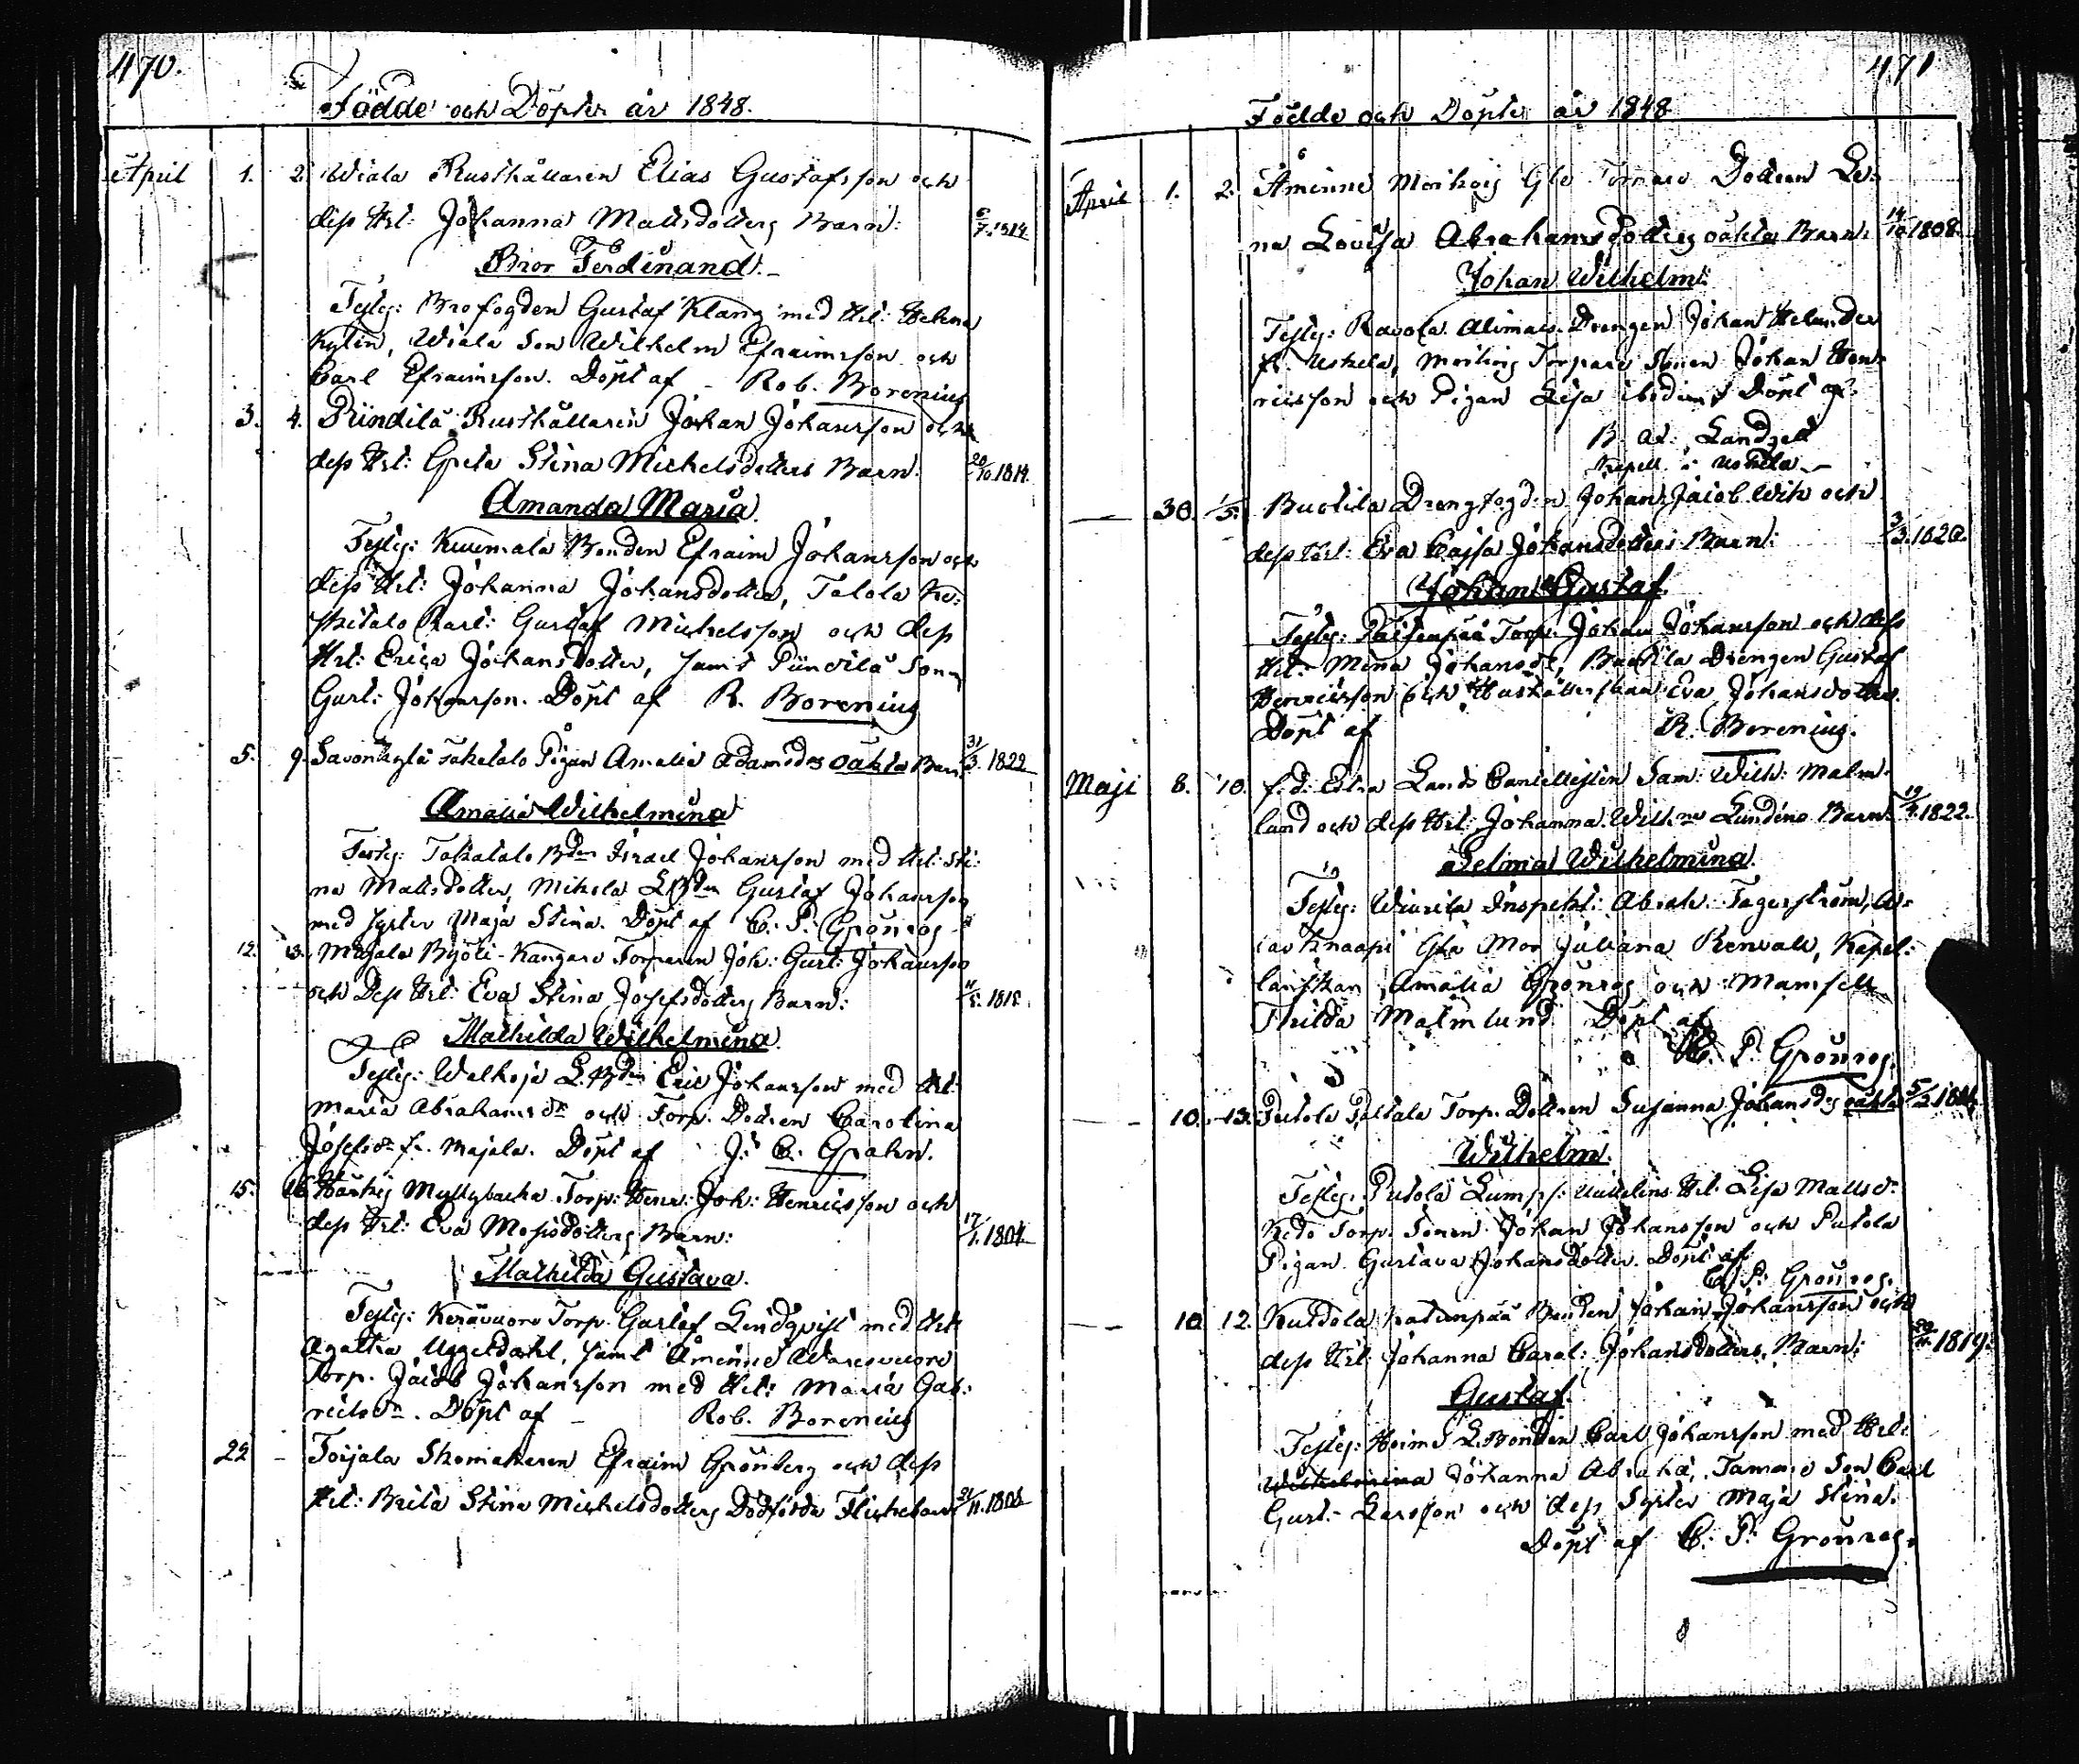 470.
Födde och Döpte år 1848.
April 1. 2. Wiala Rusthållaren Elias Gustafsson och
dess Hst: Johanna Mattsdotters Barn: 6/7. 1814
Bror Ferdinand.
Testes: Brofogden Gustaf Klang med Hst: Helena
Kylin, Wiala Son Wilhelm Efraimsson och
Carl Efraimsson. Döpt af – Rob. Borenius
3. 4. Pündilä Rusthållaren Johan Johansson och
dess Hst: Greta Stina Michelsdotters Barn. 20/10. 1814.
Amanda Maria.
Testes: Kuumala Bonden Efraim Johansson och
dess Hst: Johanna Johansdotter, Talola
Gustaf Michelsson och dess
Hst: Erica Johansdotter, samt Pündilä Son
Gust: Johansson. Döpt af R. Borenius
5. 9. Savonkylä Takalalo Pigan Amalia Adamsd:s oäkta Barn 31/3. 1822
Amalia Wilhelmina
Testes: Takalalo Bden Israel Johansson med Hst: Sti-
na Mattsdotter, Mikola LBden Gustaf Johansson
med syster Maja Stina. Döpt af C. P. Grönros
12. 13. Majala Byöli-Kangare Torparen Joh: Gust: Johansson
och Dess Hst: Eva Stina Josefsdotters Barn: 11/5. 1818.
Mathilda Wilhelmina.
Testes: Walkoja L.Bden Eric Johansson med Hst:
Maria Abrahamsdr och Torp. Dottren Carolina
Josefsdr fr. Majala. Döpt af J: C: Grahn.
15. 16. Myllybacka Torp: Henr: Joh: Henricsson och
dess Hst: Eva Mosisdotters Barn: 17/1. 1804.
Mathilda Gustava.
Testes: Keravuore Torp. Gustaf Lindqvist med Hst:
Agatha Uggeldahl, samt Åminne Waresvuore
Torp. Jacob Johansson med Hst: Maria Gab-
rielsdr. Döpt af – Rob. Borenius
22 – Toijala Skomakaren Efraim Grönberg och dess
Hst: Brita Stina Michelsdotters Dödfödda Flickebarn 21/11. 1808
471
Födde och Döpte år 1848
April 1. 2. Åminne Torpare Dottren Le-
na Lovisa Abrahamsdotters oäkta Barn: 14/10 1808.
Johan Wilhelm.
Testes: Ravola Alimais Drengen Johan Helander
fr. Uskela, Torpare Sonen Johan Hen-
ricsson och Pigan Lisa ibidem. Döpt af
B. Ad: Landzett
Kapell. i Uskela –
— 30. 1/5. Buctila Drengfogden Johan Jacob Wik och
dess Hst: Eva Cajsa Johansdotters Barn: 3/3. 1820.
Johan Gustaf.
Testes: Torp: Johan Johansson och dess
Hst: Mina Johansdr, Buctila Drengen Gustaf
Henricsson och Hushållerskan Eva Johansdotter.
Döpt af R. Borenius.
Maji 8. 10. f. d. Extra Lands Cancellisten Sam: Wilh: Malm-
lund och dess Hst: Johanna Wilhna Lundéns Barn: 19/7. 1822.
Selma Wilhelmina.
Testes: Wiurila Inspekt: Abrah: Fagerström,
Knaapi Gla Mor Juliana Renvall, Kapel-
lanskan Amalia Grönros och Mamsell
Thilda Malmlund Döpt af
C. P. Grönros.
— 10. 13. Putola Paltala Torp. Dottren Susanna Johansd:s oäkta 5/2. 1804.
Wilhelm.
Testes: Putola Hst: Lisa Mattsdr
Kedo Torp. Sonen Johan Johansson och Putola
Pigan Gustava Johansdotter. Döpt af
C. P: Grönros.
— 10. 12. Kurdola Bonden Johan Johansson och
dess Hst: Johanna Carol: Johansdotters Barn: 1819.
Gustaf.
Testes: L.Bonden Carl Johansson med Hst:
Wilhelmina Johanna Abraha, Tamare Son Carl
Gust: Larsson och dess Syster Maja Stina.
Döpt af C: P: Grönros.